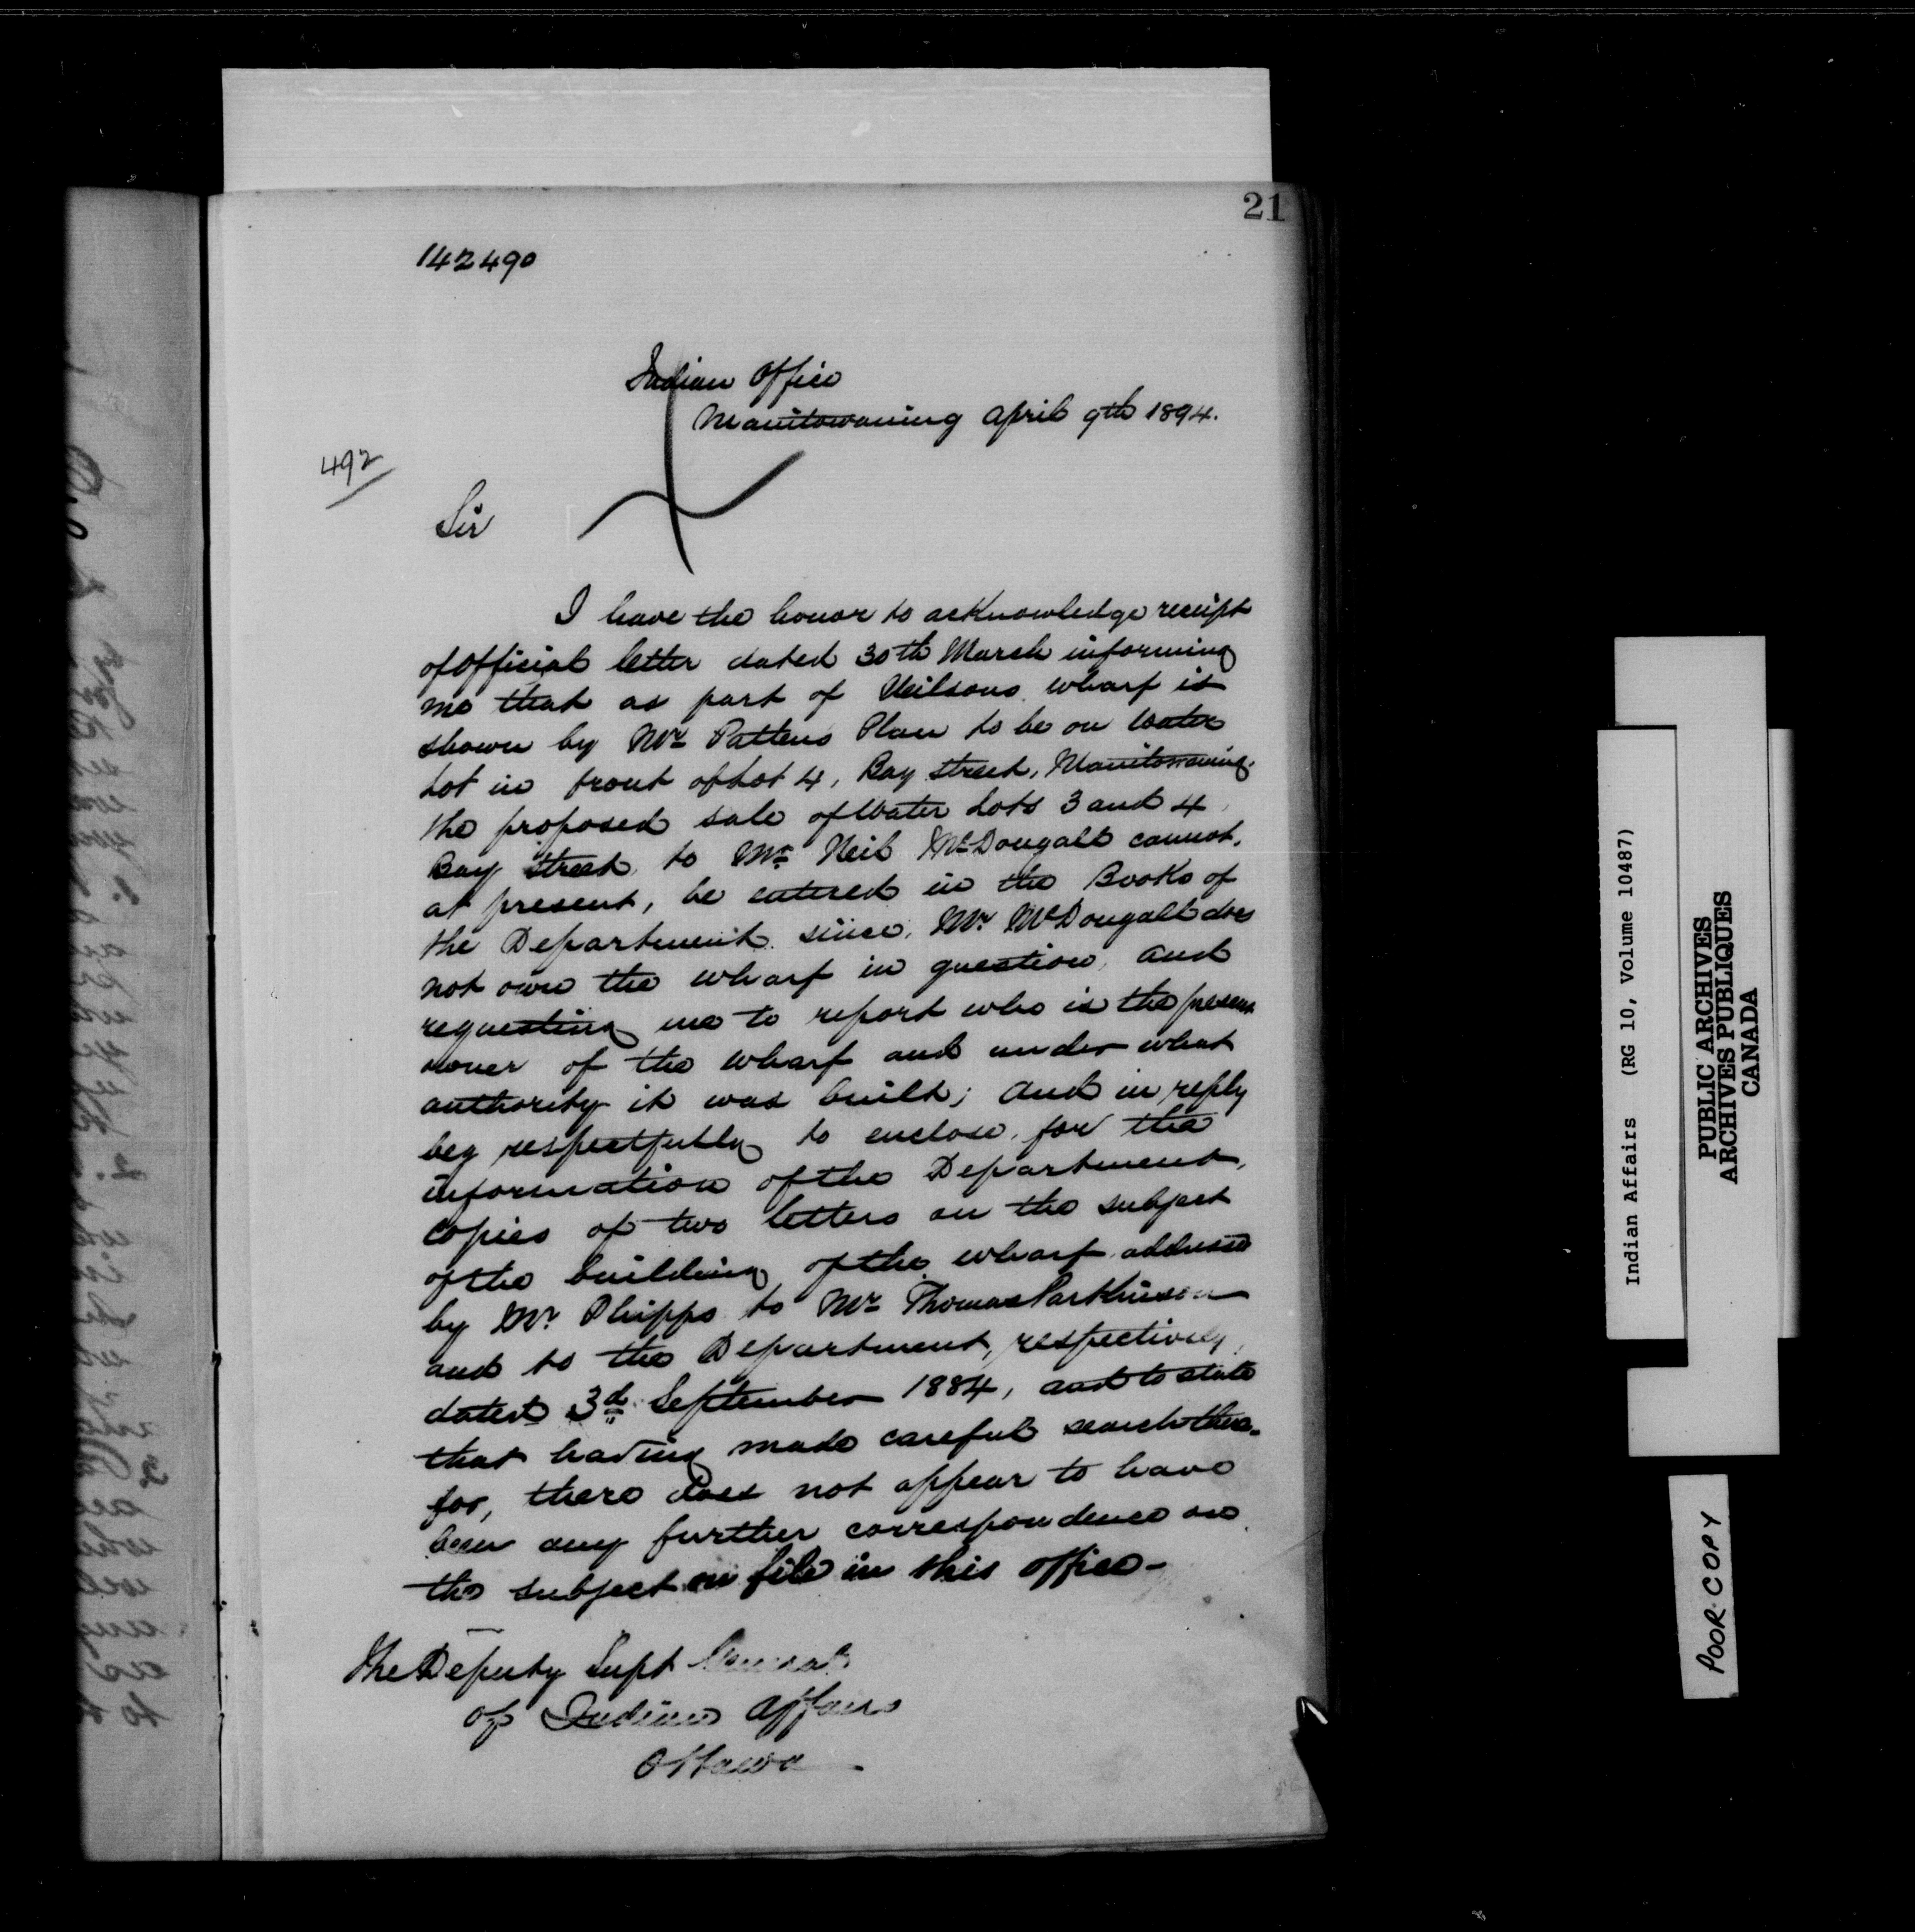 21
142490
Indian Office
Manitowaning April 9th 1894.
492
Sir
I have the honor to acknowledge receipt
of official letter dated 30th March informing
me that as part of Neilsons wharf is
shown by Mr Pattens Plan to be on Water
Lot in front of Lot 4, Bay Street, Manitowaning.
the proposed sale of Water Lots 3 and 4,
Bay Street, to Mr Neil McDougall cannot,
at present, be entered in the Books of
the Department since, Mr McDougall does
not own the wharf in question, and
requesting me to report who is the present
owner of the wharf and under what
authority it was built; and in reply
beg respectfully to enclose, for the
information of the Department,
copies of two letters on the subject
of the building of the wharf addressed
by Mr. Phipps to Mr Thomas Parkinson
and to the Department, respectively,
dated 3d September 1884, and to state
that having made careful search there-
for, there does not appear to have
been any further correspondence on
the subject on file in this office-
The Deputy Supt General
of Indian Affairs
Ottawa
Indian Affairs (RG 10, Volume 10487)
PUBLIC ARCHIVES
ARCHIVES PUBLIQUES
CANADA
POOR COPY